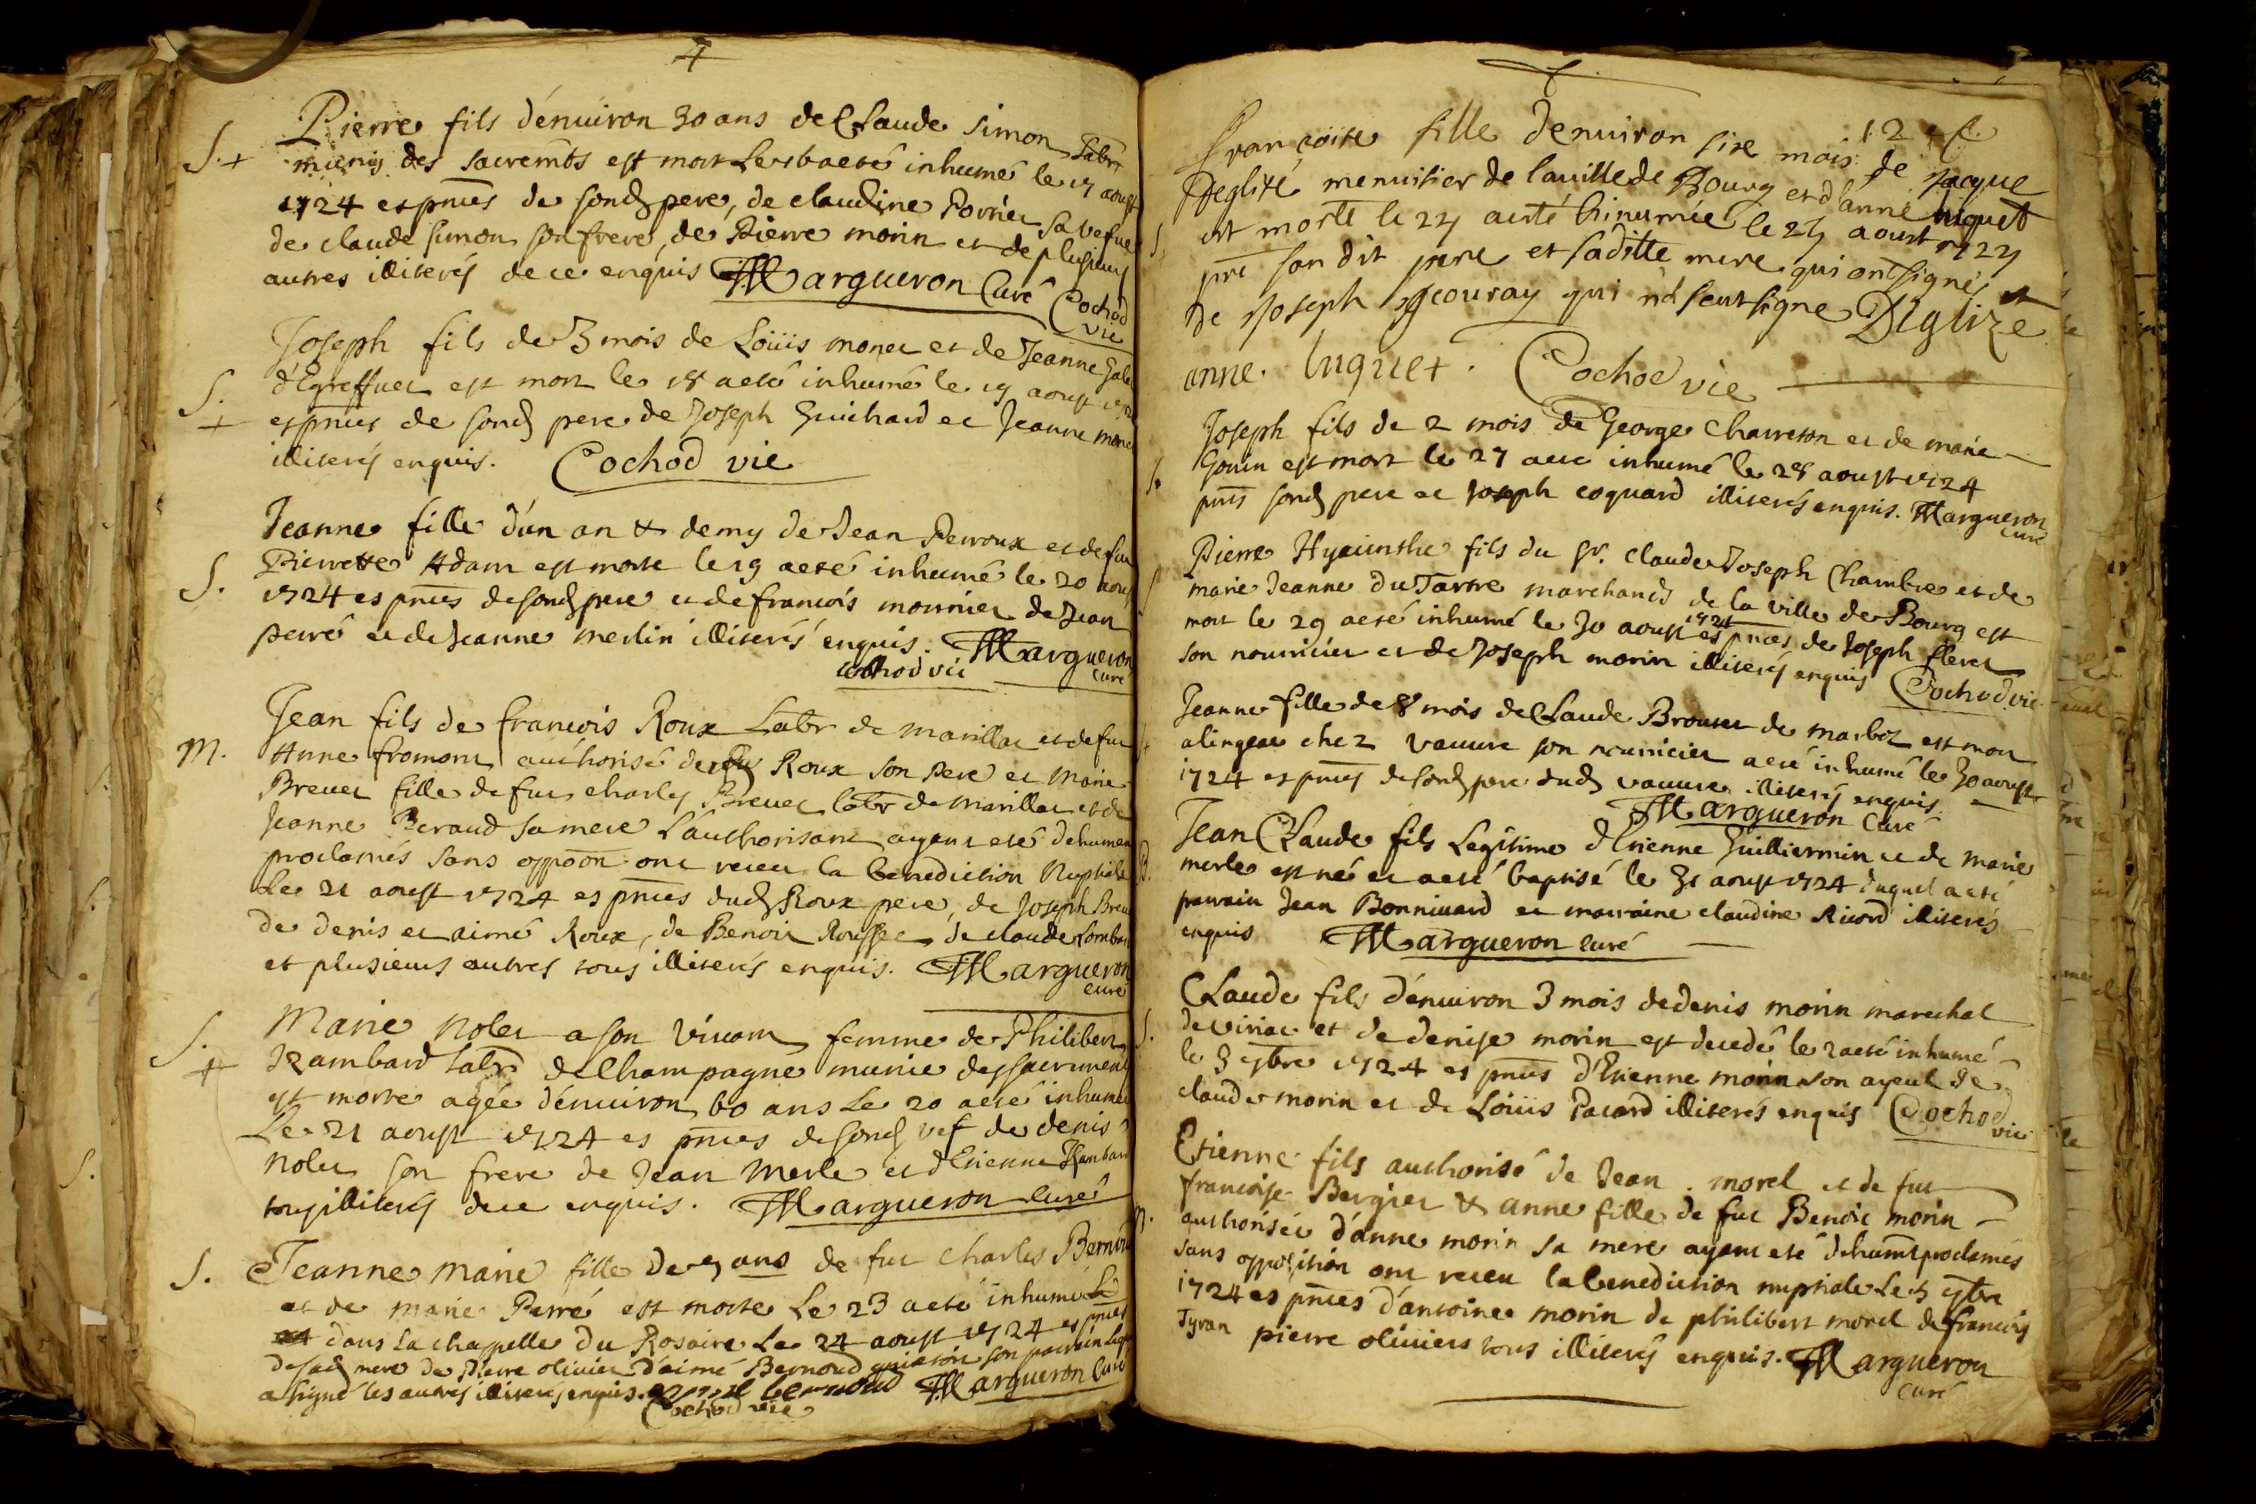 Pierre fils d'enuiron 30 ans de Claude Simon Labr
munis des sacremts est mort le 16 a eté inhumé le 17 aoust
1724 es pnces de sond pere, de claudine Povrier sa vefue
de claude simon son frere, de Pierre morin et de plusieurs
autres illiterés de ce enquis Margueron Curé Cochod
vic
S. +
Joseph fils de 3 mois de Loüis monet et de Jeanne
d'Egreffuet est mort le 18 a eté inhumé le 19 aoust
es pnces de sond pere de Joseph Guichard et Jeanne
illiterés enquis. Cochod vic
S. +
Jeanne fille d'un an & demy de Jean Perroux et de fue
Pierrette Adam est morte le 19 a eté inhumé le 20 aoust
1724 es pnces de sond pere et de francois mournier de Jean
perré et de Jeanne merlin illiterés enquis. Margueron
Cochod vic curé
S.
Jean fils de francois Roux Labr de marillac et de fue
Anne fromont authorisé de Roux son Pere et Marie
Brevet fille de fut charles Brevet labr de Marillac et de
Jeanne Beraud sa mere L'authorisant ayant eté dehument
proclamés sans oppoon ont receu la benediction Nuptiale
Le 21 aoust 1724 es pnces dud Roux pere, de Joseph
de denis et aimé Roux, de Benoit Rousset de claude
et plusieurs autres tous illiterés enquis. Margueron
curé
M.
Marie nolet a son Viuant femme de Philibert
Rambard Labr de Champagne munie des sacrements
est morte agée d'enuiron 60 ans Le 20 a eté inhumée
Le 21 aoust 1724 es pnces de sond vef de denis
nolet son frere de Jean Merle et d'Etienne Rambard
tous illiterés de ce enquis. Margueron Curé
S. +
Jeanne Marie fille de 7 ans de fut Charles
et de Marie Perré est morte Le 23 a eté inhumé
dans la chappelle du Rosaire Le 24 aoust 1724 es pnces
de sad mere de Pierre olivier d'aimé Bernoud son parrain
a signé les autres illiterés enquis. Bernoud Margueron Curé
Cochod vic
S.
francoise fille denuiron sixe mois de Jacque
Deglisé menuisier de la uille de Bourg et d'anne luquet
est morte le 24 aesté hinumée le 25 aoust 1724
pre son dit pere et saditte mere qui ont signés et
de Joseph qui n'a seut signe Déglize
anne. luquet. Cochod vic
Joseph fils de 2 mois de George Charreton et de marie
Gouin est mort le 27 a ete inhumé le 28 aoust 1724
pnts sond pere et Joseph coquard illiterés enquis. Margueron
curé
Pierre Hyacinthe fils du sr. Claude Joseph Chambre et de
marie Jeanne du Tartre marchands de la ville de Bourg est
mort le 29 a eté inhumé le 30 aoust 1724 es pnces de Joseph
son nourricier et de Joseph morin illiterés enquis Cochod vic
Jeanne fille de 8 mois de Claude Brouset de marboz est mort
a lingeat chez Vauure son nourricier a eté inhumé le 30 aoust
1724 es pnces de sond pere dud vauure illiterés enquis
Margueron Curé
Jean Claude fils Legitime d'Etienne Guilliermin et de Marie
merle est né et a eté baptisé le 31 aoust 1724 duquel a eté
parrain Jean Bonnivard et marraine claudine Ricord illiterés
enquis Margueron curé
Claude fils d'enuiron 3 mois de denis morin marechal
de viriac et de denise morin est decedé le 2 a eté inhumé
le 3 7bre 1724 es pnces d'Etienne morin son ayeul de
claude morin et de Loüis Pacard illiterés enquis Cochod
vic
Etienne fils authorisé de Jean morel et de fue
francoise Bergier & anne fille de fut Benoit morin
authorisée d'anne morin sa mere ayant eté dehumt proclamés
sans opposition ont receu la benediction nuptiale Le 5 7bre
1724 es pnces d'antoine morin de philibert morel de francois
Tyvan pierre oliviers tous illiterés enquis. Margueron
curé